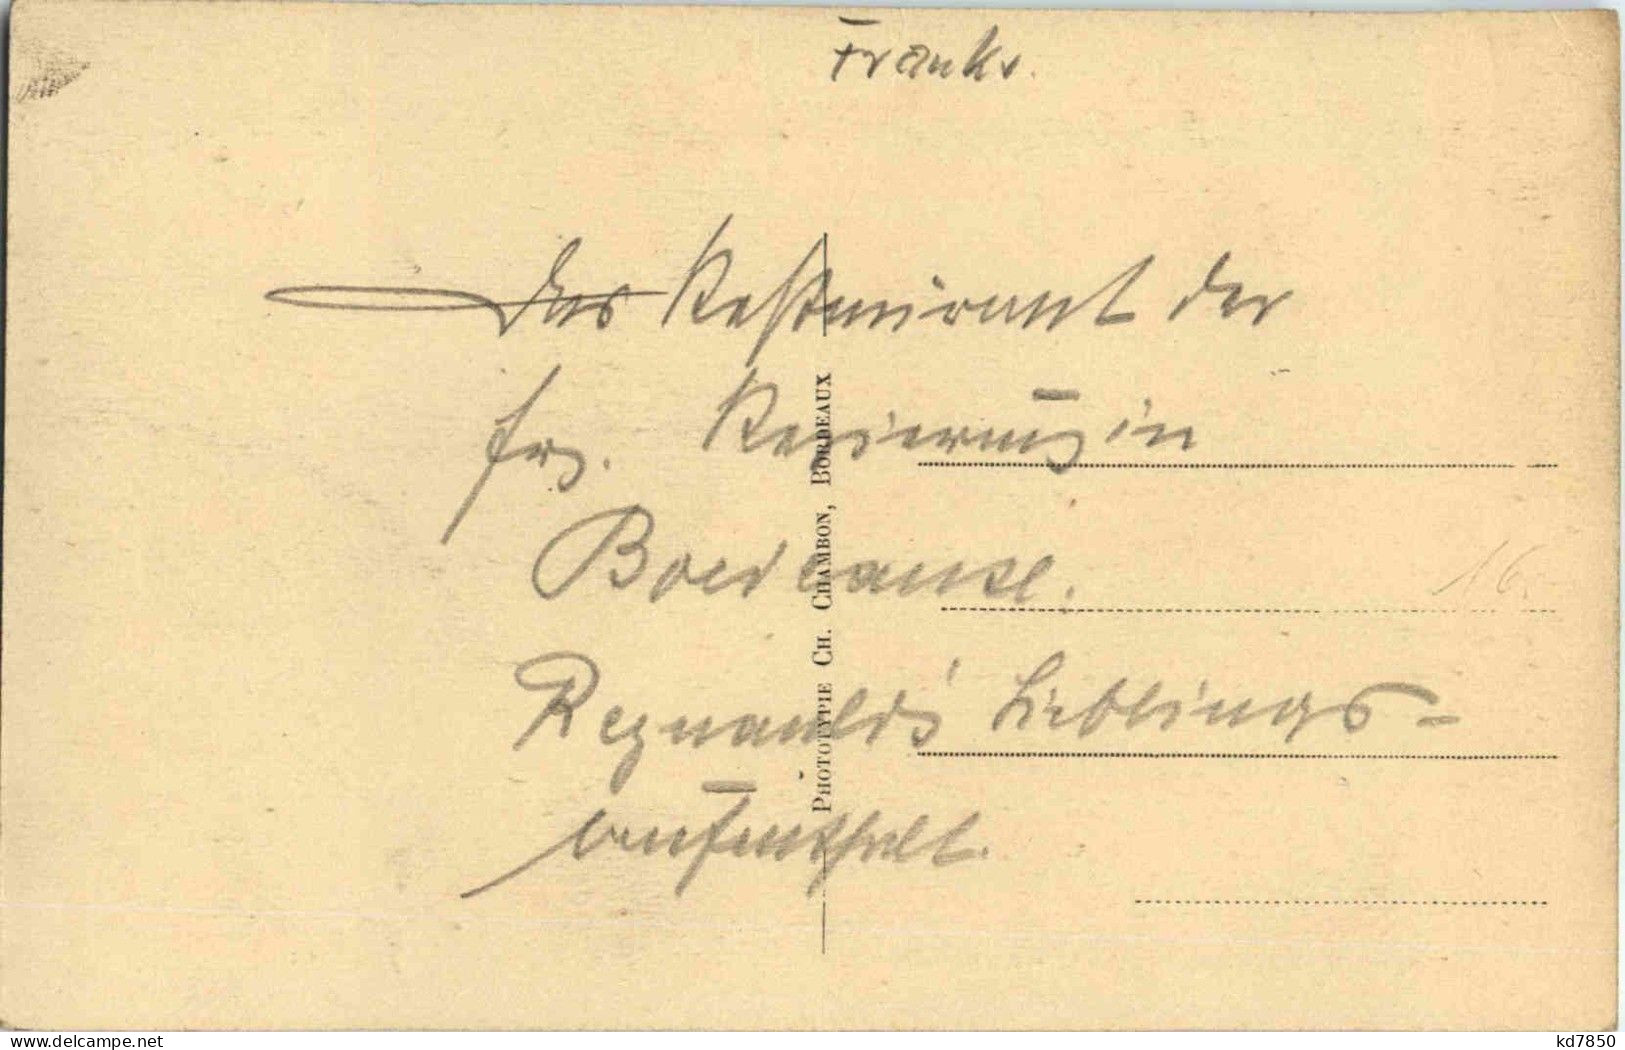 Frankr.
Das Restaurant der
frz. Regierung in
Bordeaux.
Reynauld's Lieblings-
aufenthalt.
PHOTOTYPIE CH. CHAMBON, BORDEAUX
16.
kd7850